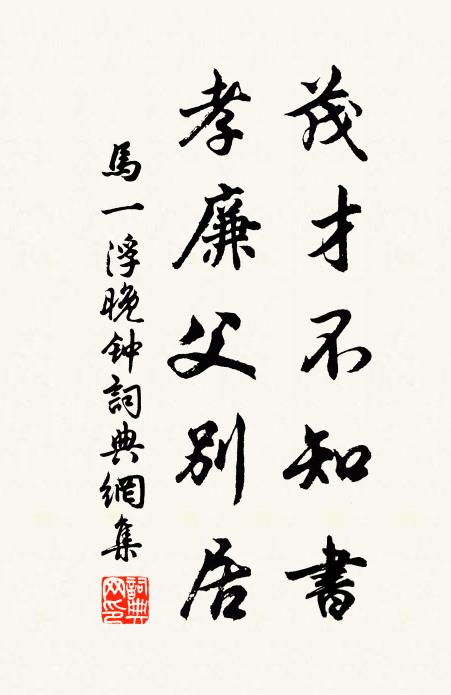 茂才不知書
孝廉父別居
馬一浮晚钟詞典網集
詞典网印